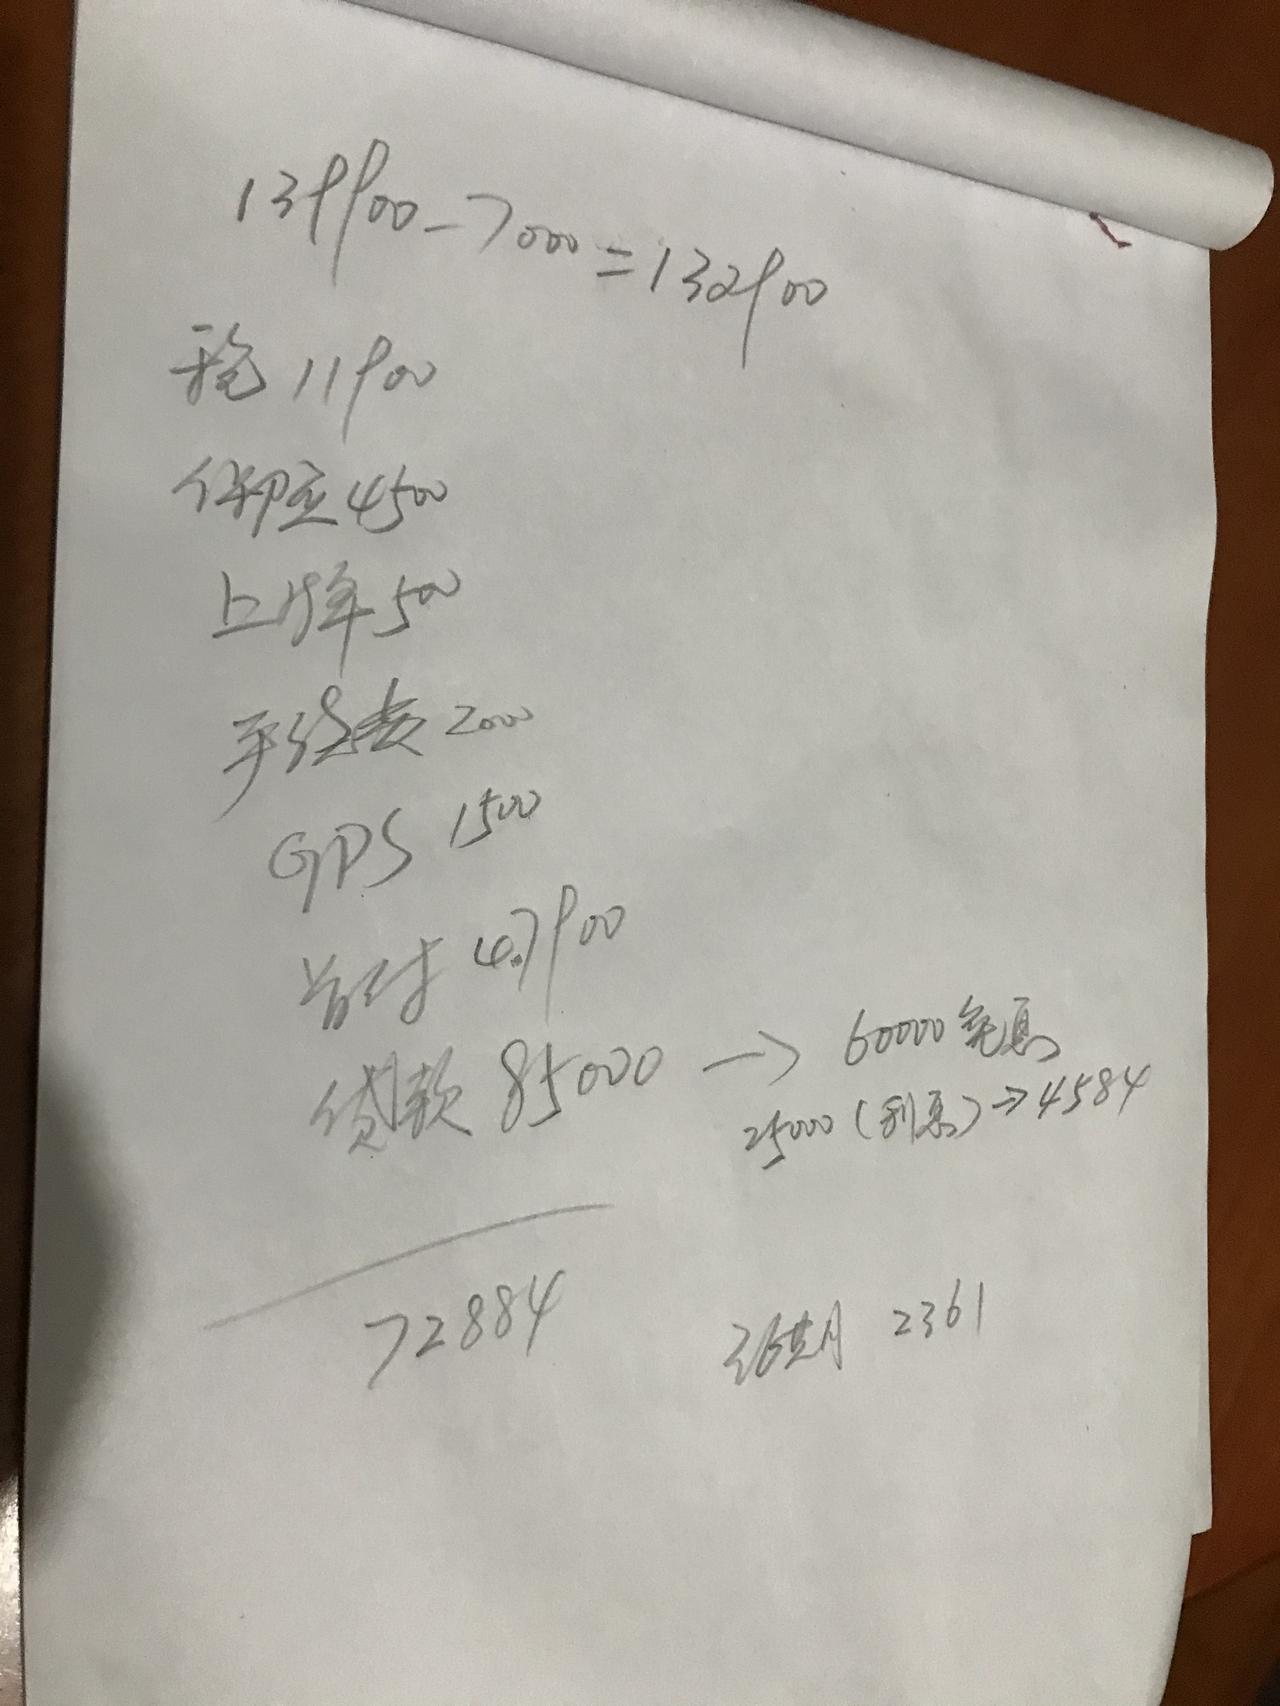 139900-7000=132900
税 11900
保险 4500
上牌 500
手续费 2000
GPS 1500
首付 4.7900
贷款 85000 → 60000 免息
25000（利息）→ 4584
72884
36期 2361